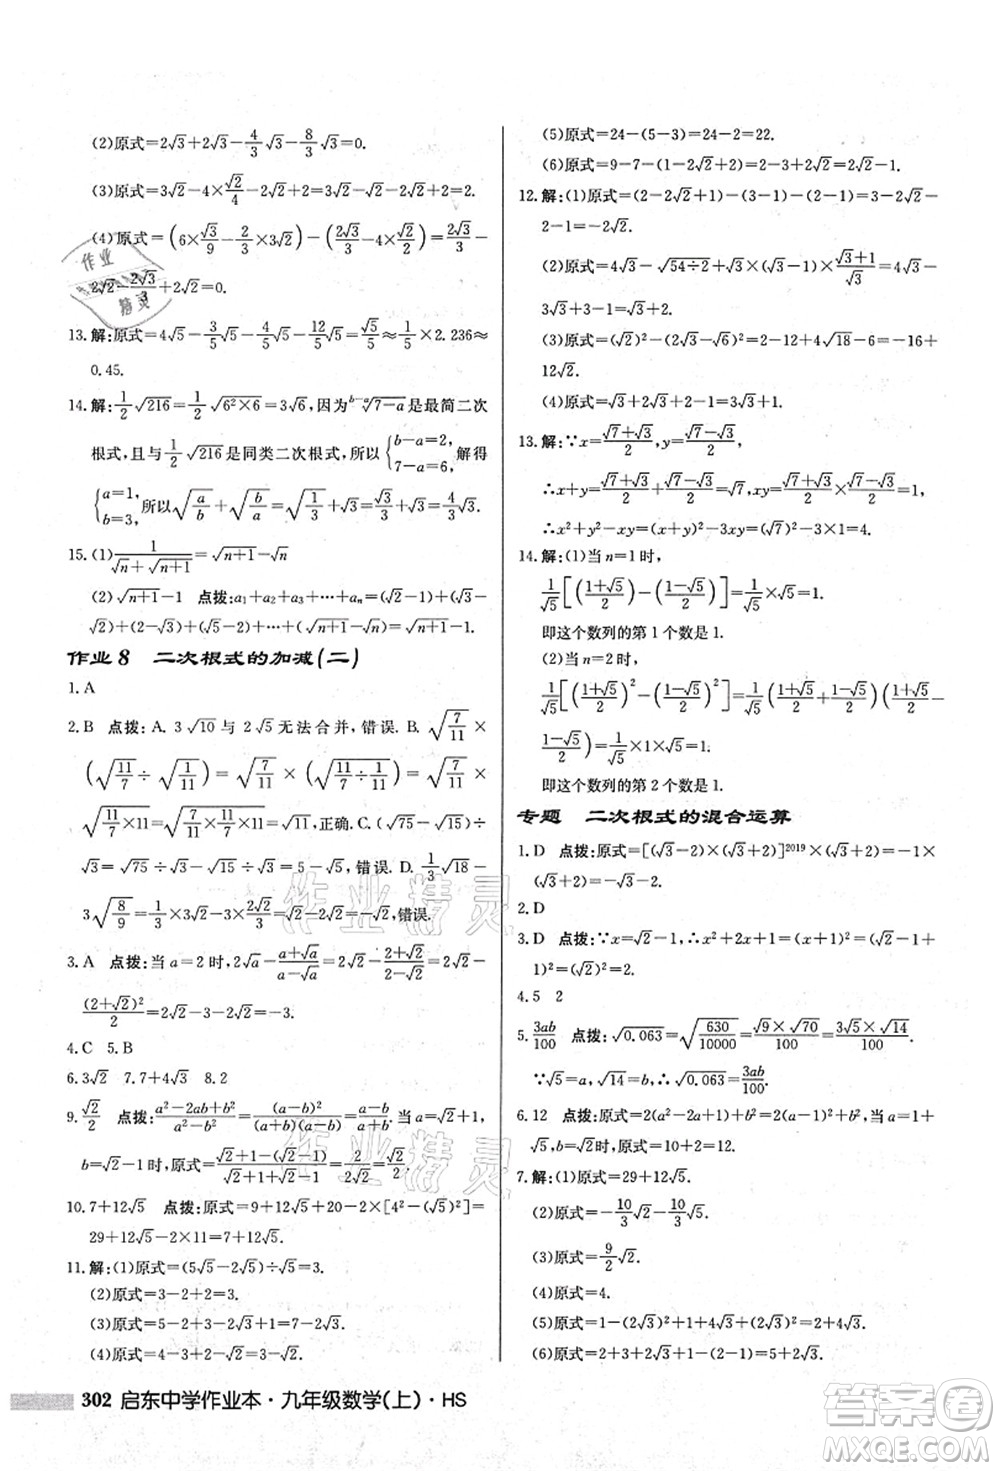 (2)原式=2√3+2√3-4/3√3-8/3√3=0.
(3)原式=2√3-4×√2/4+3√2-√3=√3+2√2.
(4)原式=(6×√3/9-2/3×3√2)-(2√3/3-4√2)=2√3/3-
2√2-2√3/3+2√2=0.
13.解:原式=4√5+3/5√5-12/5√5=√5/5≈1/5×2.236≈
0.45.
14.解:1/2√216=1/2√(6²×6)=3√6,因为 ᵇ⁻ᵃ√(7-a)是最简二次
根式,且与1/2√216是同类二次根式,所以{b-a=2, 7-a=6,解得
{a=1, b=3,所以√(a/b)+√(b/a)=√(1/3)+√3=4/3√3.
15.(1)1/(√n+√(n+1))=√(n+1)-√n
(2)√(n+1)-1 点拨:a₁+a₂+a₃+…+aₙ=(√2-1)+(√3-
√2)+(2-√3)+(√5-2)+…+(√(n+1)-√n)=√(n+1)-1.
作业8 二次根式的加减(二)
1.A
2.B 点拨:A.3√10与2√5无法合并,错误.B.√(7/11)
×(√(11/7)÷√(1/11))=√(7/11)×(√(11/7÷1/11))=
√(11/7×11)×√(7/11)=√(11/7×11×7/11)=√11,正确.C.(√75-√15)÷
√3=√75÷√3-√15÷√3=5-√5,错误.D.1/3√18-
3√(8/9)=1/3×3√2-3×2/3√2=√2-2√2=-√2,错误.
3.A 点拨:当a=2时,2√a/(1-√a)-(a+√a)²/a=2√2/(1-√2)-
(2+√2)²/2=2√2(1+√2)/(1-2)-(6+4√2)/2=-4-2√2-3-2√2=-7-4√2.
4.C 5.B
6.3√2 7.7+4√3 8.2
9.√2/2 点拨:(a²-2ab+b²)/(a²-b²)=(a-b)²/((a+b)(a-b))=(a-b)/(a+b).当a=√2+1,
b=√2-1时,原式=(√2+1-√2+1)/(√2+1+√2-1)=2/(2√2)=√2/2.
10.7+12√5 点拨:原式=9+12√5+20-2×[4²-(√5)²]=
29+12√5-2×11=7+12√5.
11.解:(1)原式=(5√5-2√5)÷√5=3.
(2)原式=3-2+2=3.
(3)原式=5-2√5+2√5=5.
(4)原式=2√3-3-2√3=-3.
(5)原式=24-(5-3)=24-2=22.
(6)原式=9-7-(1-2√2+2)=2√2-1.
12.解:(1)原式=(2-2√2+1)-(3-1)-(2-1)=3-2√2-
2-1=-2√2.
(2)原式=4√3-√(54÷2)+(√3+1)/√3=4√3-3√3+(√3+1)/√3
=√3+1+√3/3=4√3/3+1.
(3)原式=(√5)²-(√2)²+2+4√18+9=5-2+2+9+
12√2=14+12√2.
(4)原式=√3+2-2√3+1=3-√3.
13.解:∵x=(√7+√3)/2,y=(√7-√3)/2,
∴x+y=(√7+√3)/2+(√7-√3)/2=√7,xy=(√7+√3)/2×(√7-√3)/2=1.
∴x²+y²-xy=(x+y)²-3xy=(√7)²-3×1=4.
14.解:(1)当n=1时,
1/√5[((1+√5)/2)-((1-√5)/2)]=1/√5×√5=1.
即这个数列的第1个数是1.
(2)当n=2时,
1/√5[((1+√5)/2)²-((1-√5)/2)²]=1/√5((1+√5)/2+(1-√5)/2)((1+√5)/2-
(1-√5)/2)=1/√5×1×√5=1.
即这个数列的第2个数是1.
专题 二次根式的混合运算
1.D 点拨:原式=[(√3-2)×(√3+2)]²⁰¹⁹×(√3+2)=-1×
(√3+2)=-√3-2.
2.D
3.D 点拨:∵x=√2-1,∴x²+2x+1=(x+1)²=(√2-1+
1)²=(√2)²=2.
4.5 2
5.3ab/100 点拨:√0.063=√(630/10000)=(√9×√70)/100=(3√5×√14)/100.
∵√5=a,√14=b,∴√0.063=3ab/100.
6.12 点拨:原式=2(a²-2a+1)+b²=2(a-1)²+b²,当a=1+
√5,b=√2时,原式=10+2=12.
7.解:(1)原式=29+12√5.
(2)原式=-10/3√2-10/3√3.
(3)原式=9/2√2.
(4)原式=4.
(5)原式=-2+4√3+2√3-1=6√3-3.
(6)原式=√2-2√3+2√3=√2.
302 启东中学作业本·九年级数学(上)·HS
作业
精灵
作业精灵
作业精灵
答案圈
MXQE.COM